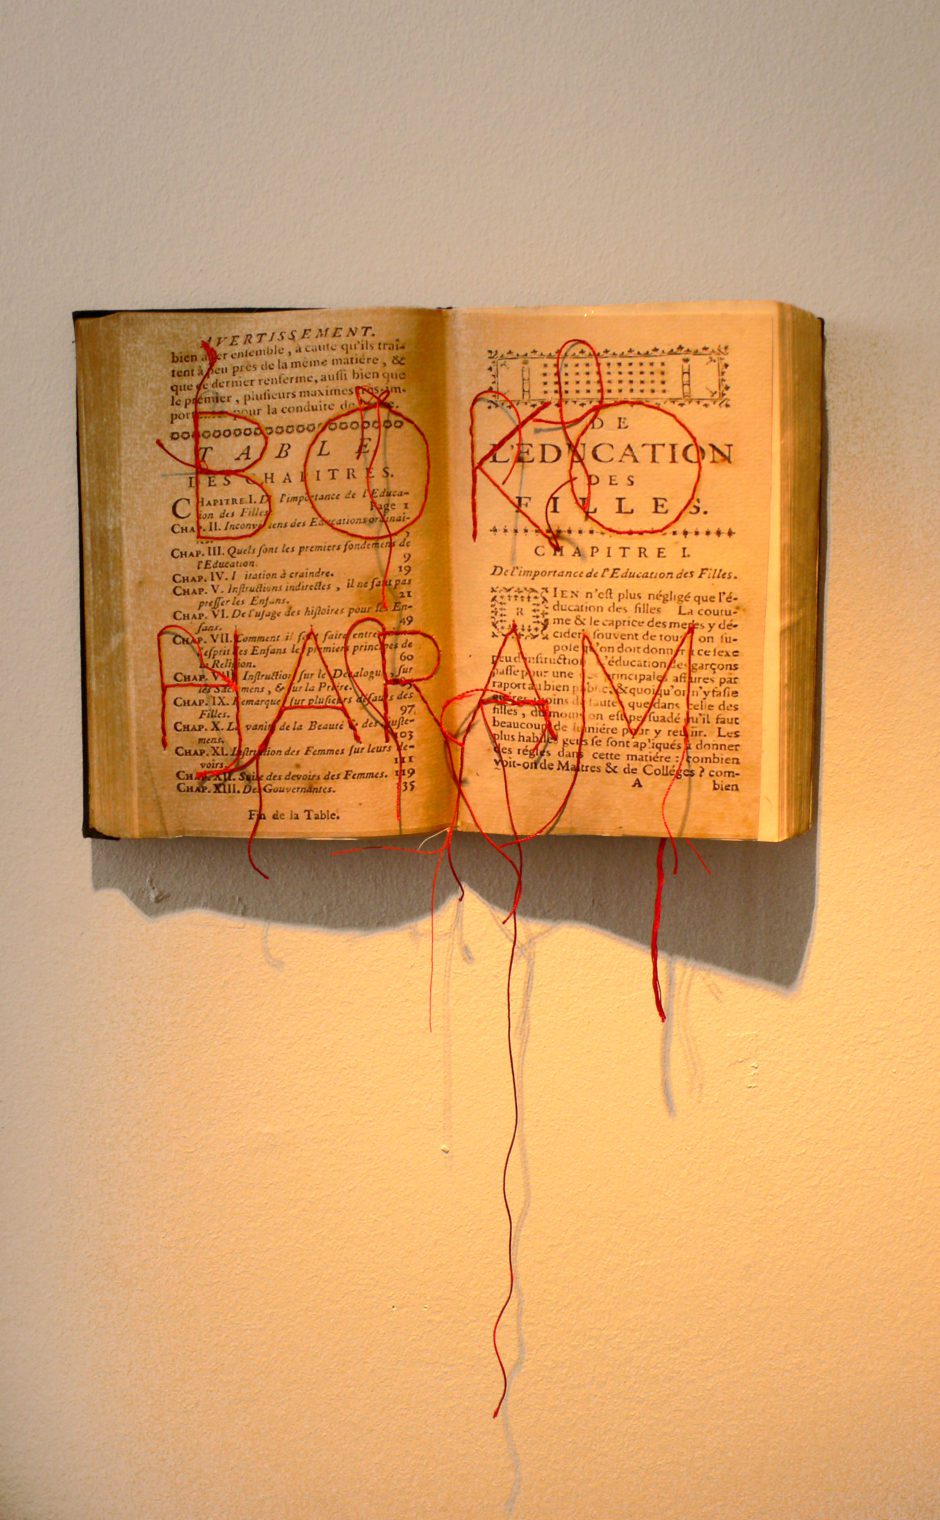 AVERTISSEMENT.
bien aller ensemble, à cause qu'ils traî-
tent à peu près de la même matiére, &
que ce dernier renferme, aussi bien que
le premier, plusieurs maximes très-im-
portantes pour la conduite de
TABLE
DES CHAPITRES.
CHAPITRE I. De l'importance de l'Educa-
tion des Filles. Page 1
CHAP. II. Inconveniens des Educations ordinai-
CHAP. III. Quels sont les premiers fondemens de
l'Education. 9
CHAP. IV. Imitation à craindre. 19
CHAP. V. Instructions indirectes, il ne faut pas
presser les Enfans. 21
CHAP. VI. De l'usage des histoires pour les En-
fans. 49
CHAP. VII. Comment il faut faire entrer
l'esprit des Enfans les premiers principes de
la Religion. 60
CHAP. VIII. Instruction sur le Decalogue, sur
les Sacremens, & sur la Priére.
CHAP. IX. Remarque sur plusieurs défauts des
Filles. 97
CHAP. X. La vanité de la Beauté & des Ajuste-
mens. 103
CHAP. XI. Instruction des Femmes sur leurs de-
voirs. 111
CHAP. XII. Suite des devoirs des Femmes. 119
CHAP. XIII. Des Gouvernantes. 135
Fin de la Table.
DE
L'EDUCATION
DES
FILLES.
CHAPITRE I.
De l'importance de l'Education des Filles.
RIEN n'est plus négligé que l'é-
ducation des filles La coutu-
me & le caprice des meres y dé-
cident souvent de tout: on su-
pose qu'on doit donner à ce sexe
peu d'instruction. L'éducation des garçons
passe pour une des principales affaires par
raport au bien public, & quoi qu'on n'y fasse
guéres moins de fautes que dans celle des
filles, du moins on est persuadé qu'il faut
beaucoup de lumiére pour y reüssir. Les
plus habiles gens se sont apliqués à donner
des régles dans cette matiére: combien
voit-on de Maîtres & de Colléges? com-
A bien
BOKO
HARAM